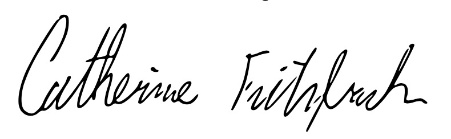 Catherine Fritzbach